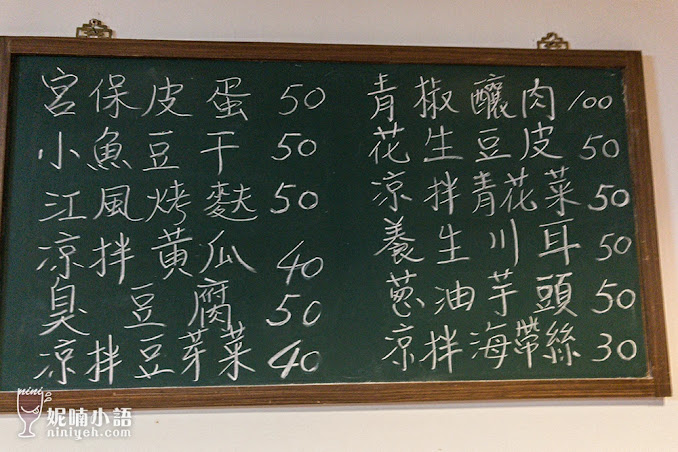 宮保皮蛋 50
小魚豆干 50
江風烤麩 50
涼拌黃瓜 40
臭豆腐 50
涼拌豆芽菜 40
青椒釀肉 100
花生豆皮 50
涼拌青花菜 50
養生川耳 50
蔥油芋頭 50
涼拌海帶絲 30
nini
妮喃小語
niniyeh.com